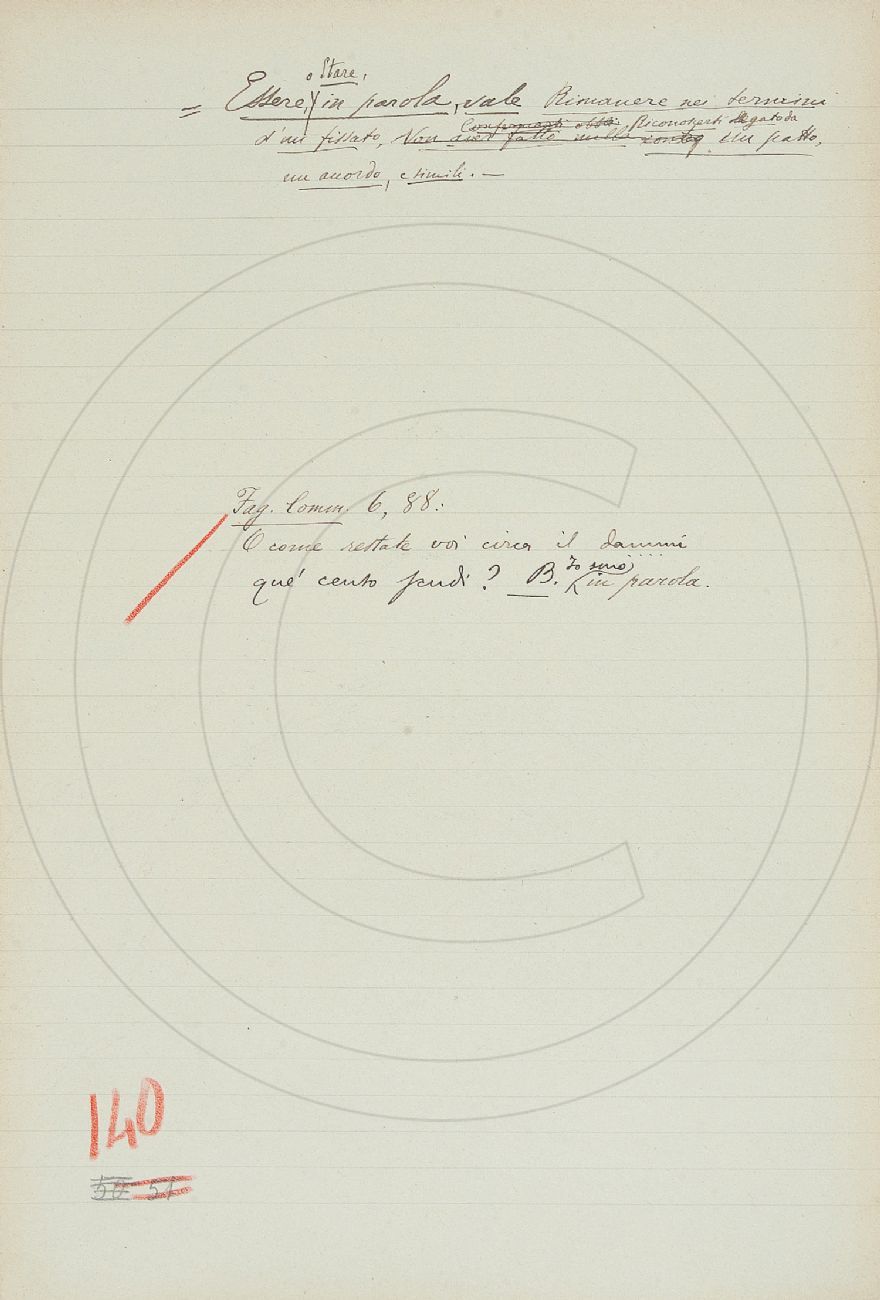 o Stare,
= Essere, in parola, vale Rimanere nei termini
Riconoscersi legato da
d'un fissato, Non aver fatto nulla un patto,
un accordo, e simili. —
Fag. Comm. 6, 88.:
O come restate voi circa il dammi
que' cento scudi? B. in parola.
Io sono
140
50 51